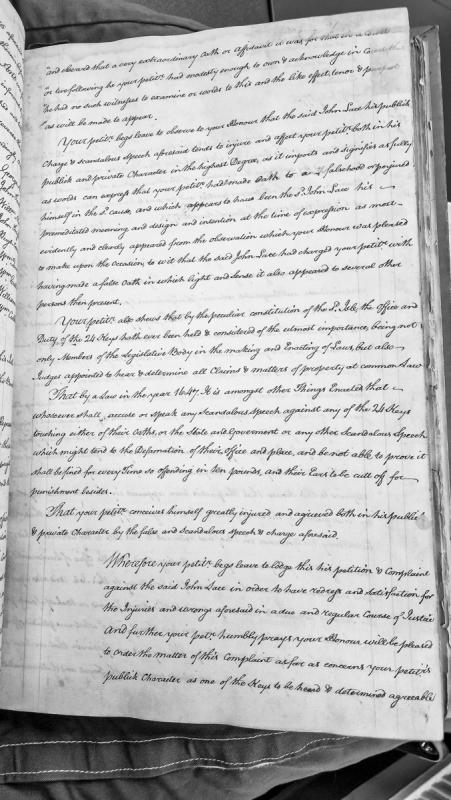 and sweard that a very extraordinary Oath or Affidavit it was, for that in a Court
or two following he your petitr. had modestly enough to own & acknowledge in Court that
he had no such witnesses to examine or words to this and the like effect, tenor & purport
as will be made to appear.
Your petitr. begs leave to observe to your Honour that the said John Lace his publick
Charge & scandalous Speech aforesaid tends to injure and affect your petitr. both in his
publick and private Character in the highest Degree, as it imports and signifies as fully
as words can express that your petitr. had made Oath to a falsehood or perjured
himself in the sd. Cause, and which appears to have been the sd. John Lace his
premeditated meaning and design and intention at the time of expression as most
evidently and clearly appeared from the observation which your Honour was pleased
to make upon the Occasion, to wit that the said John Lace had charged your petitr. with
having made a false Oath in which light and sense it also appeared to several other
persons then present.
Your petitr. also shews that by the peculiar constitution of the sd. Isle, the Office and
Duty of the 24 Keys hath ever been held & considered of the utmost importance, being not
only Members of the Legislative Body in the making and Enacting of Laws, but also
Judges appointed to hear & determine all Claims & matters of property at common Law
That by a Law in the year 1647, It is amongst other Things Enacted that
whosoever shall accuse or speak any Scandalous Speech against any of the 24 Keys
touching either of their Oaths, or the State and Goverment or any other Scandalous Speech
which might tend to the Defamation of their Office and place, and be not able to prove it
shall be fined for every Time so offending in ten pounds, and their Ears to be cutt off for
punishment besides.
That your petitr. conceives himself greatly injured and agrieved both in his public
& private Character by the false and scandalous Speech & charge aforesaid.
Wherefore your petitr. begs leave to lodge this his petition & Complaint
against the said John Lace in order to have redress and satisfaction for
the Injuries and wrongs aforesaid in a due and regular Course of Justice
And further your petr. humbly prays your Honour will be pleased
to order the matter of this Complaint as far as concerns your petitr's
publick Character as one of the Keys to be heard & determined agreeable